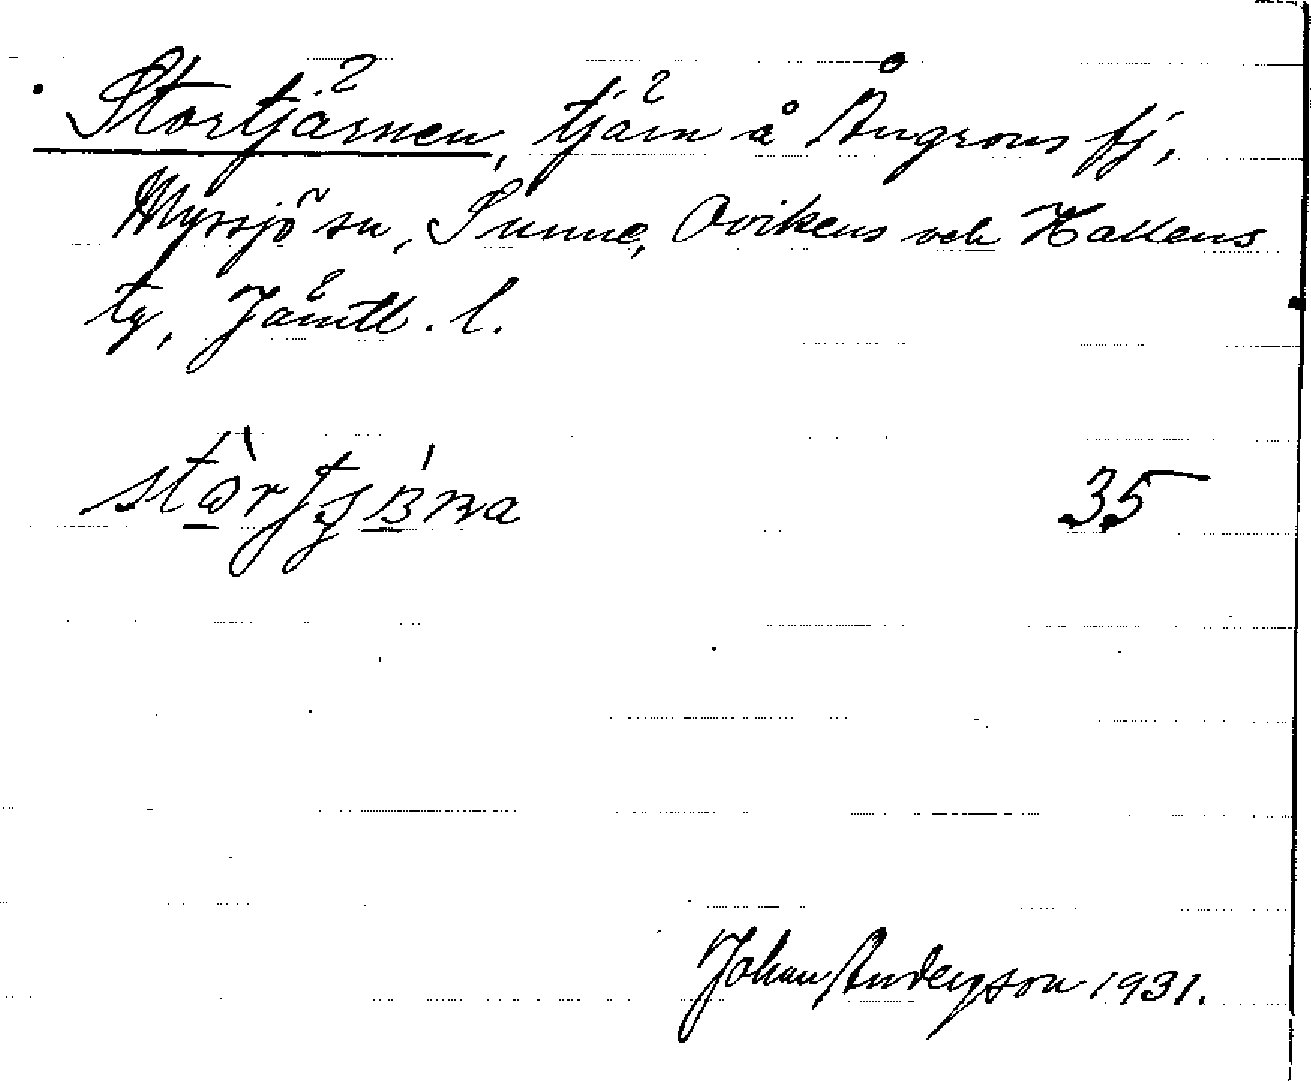 Stortjärnen, tjärn å Ångrons fj,
Myssjö sn, Sunne, Ovikens och Hallens
tg, Jämtl. l.
35
Johan Anderson 1931.